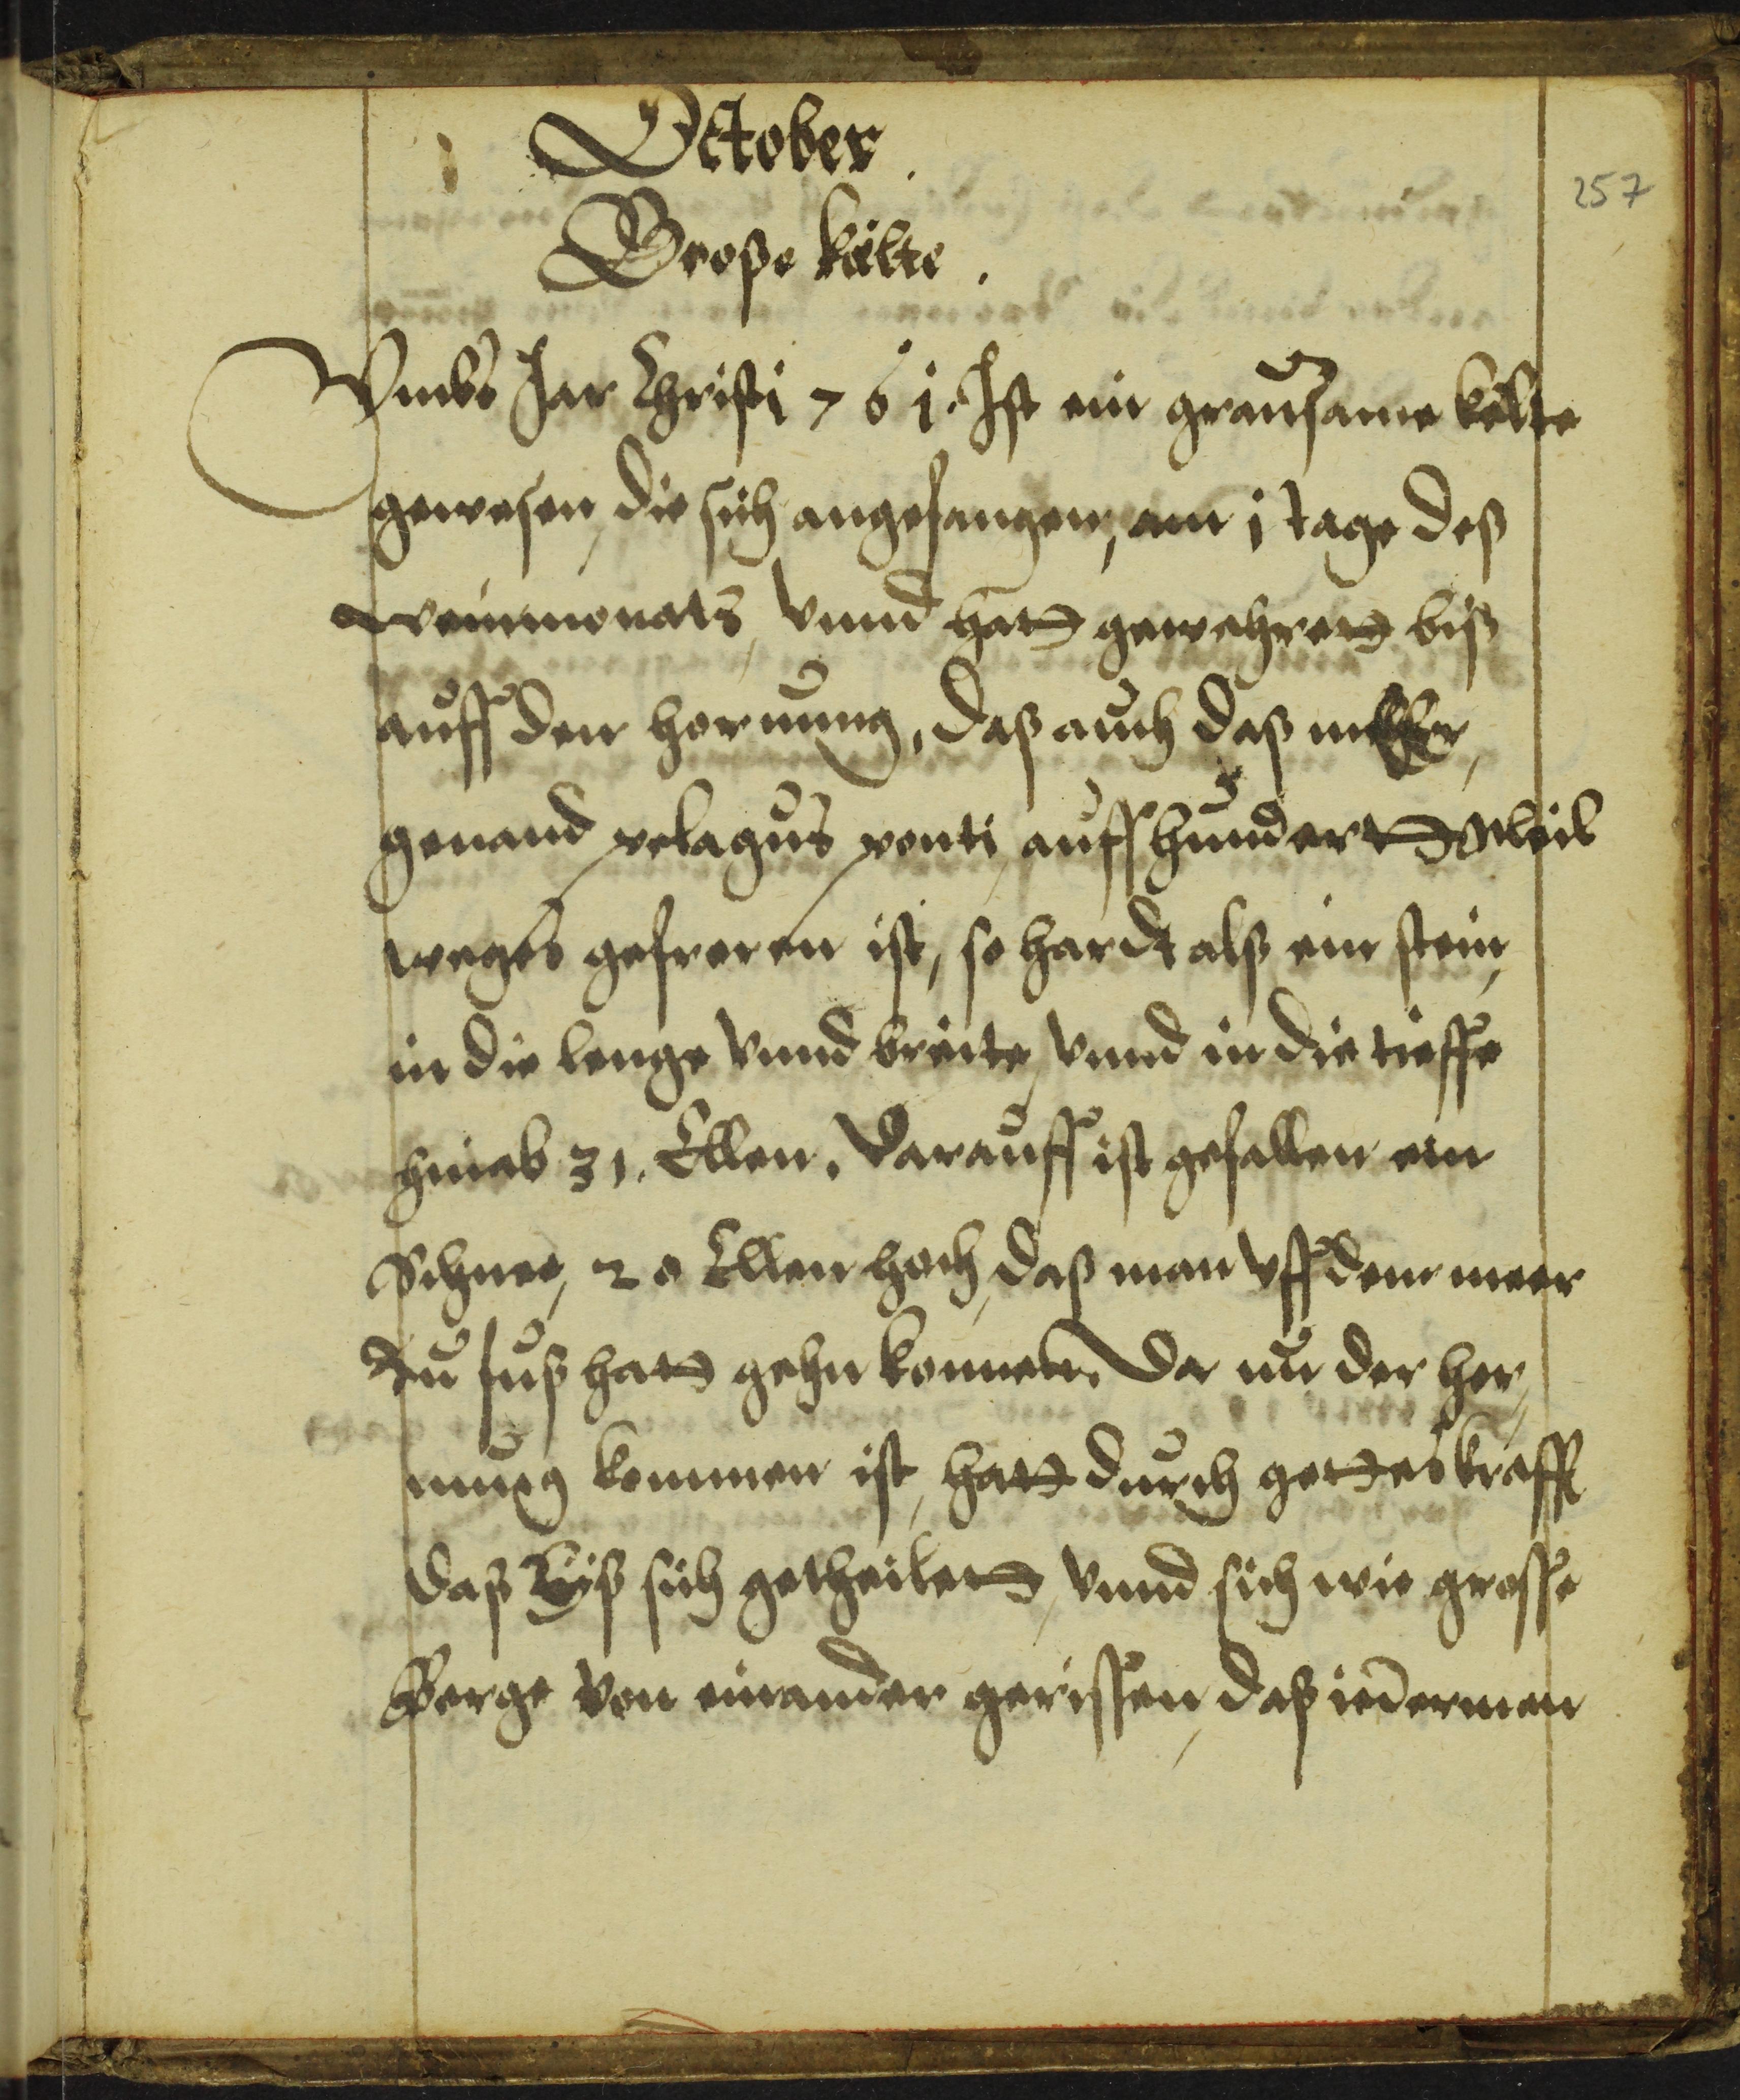 October.
257
Große kälte.
Vmbs Jar Christi 761. Ist ein grausame kelte
gewesen, die sich angefangen, am 1 tage deß
weinmonats, vnnd hatt gewehrett biß
auff den hornung, daß auch daß meer,
genand pelagus ponti, auff hundertt Meil
weges gefroren ist, so hardt alß ein stein,
in die lenge vnnd breite, vnnd in die tieffe
hinab 31. Ellen. Darauff ist gefallen ein
Schnee, 20 Ellen hoch, daß man vff dem meer
zu fuß hatt gehn konnen. Da nu der hor,
nung kommen ist, hatt durch gottes krafft
daß Eyß sich getheilett, vnnd sich wie grosse
Berge von einander gerissen, daß iederman